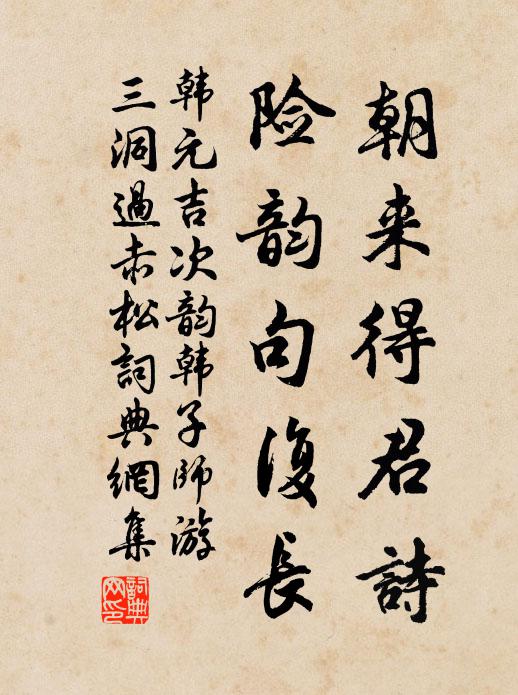 朝来得君詩
险韵句復長
韩元吉次韵韩子师游
三洞過赤松詞典網集
詞典网印